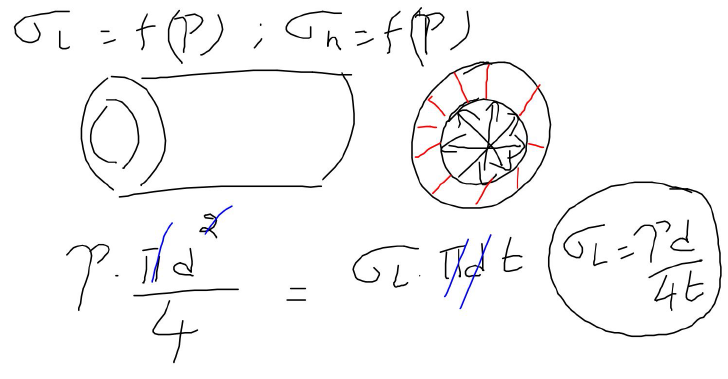 σL = f(P) ; σh = f(P)
P · πd²/4 = σL · πd t
σL = Pd/4t